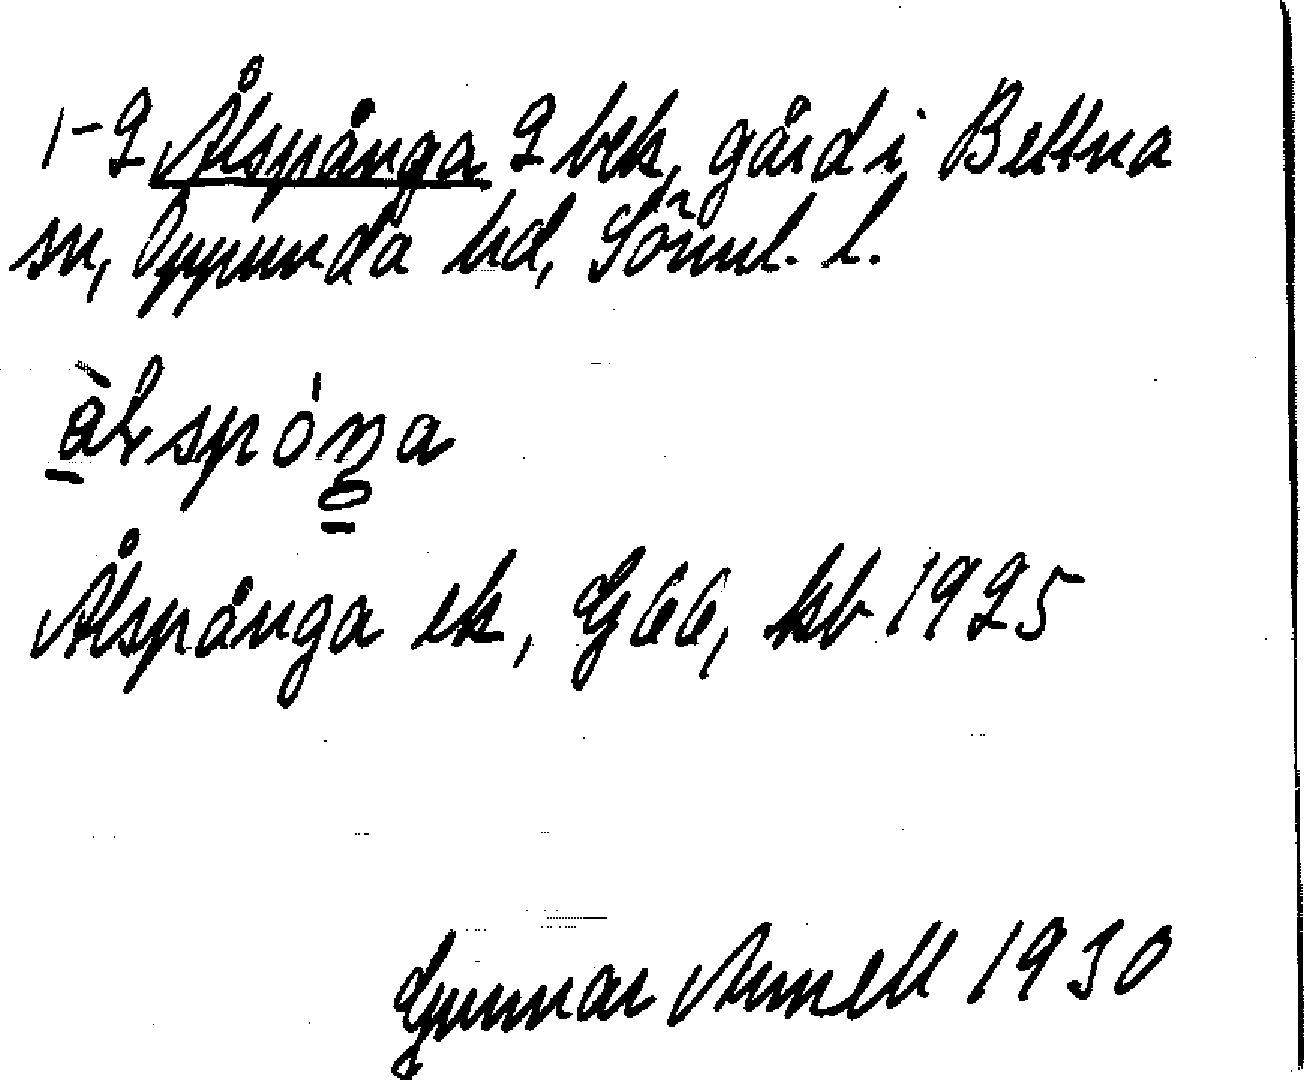 1-2 Ålspånga 2 bek, gård i Bettna
sn, Oppunda hd, Sörml. l.
àlspóŋa
Ålspånga ek, G66, kb 1925
Gunnar Arnell 1930